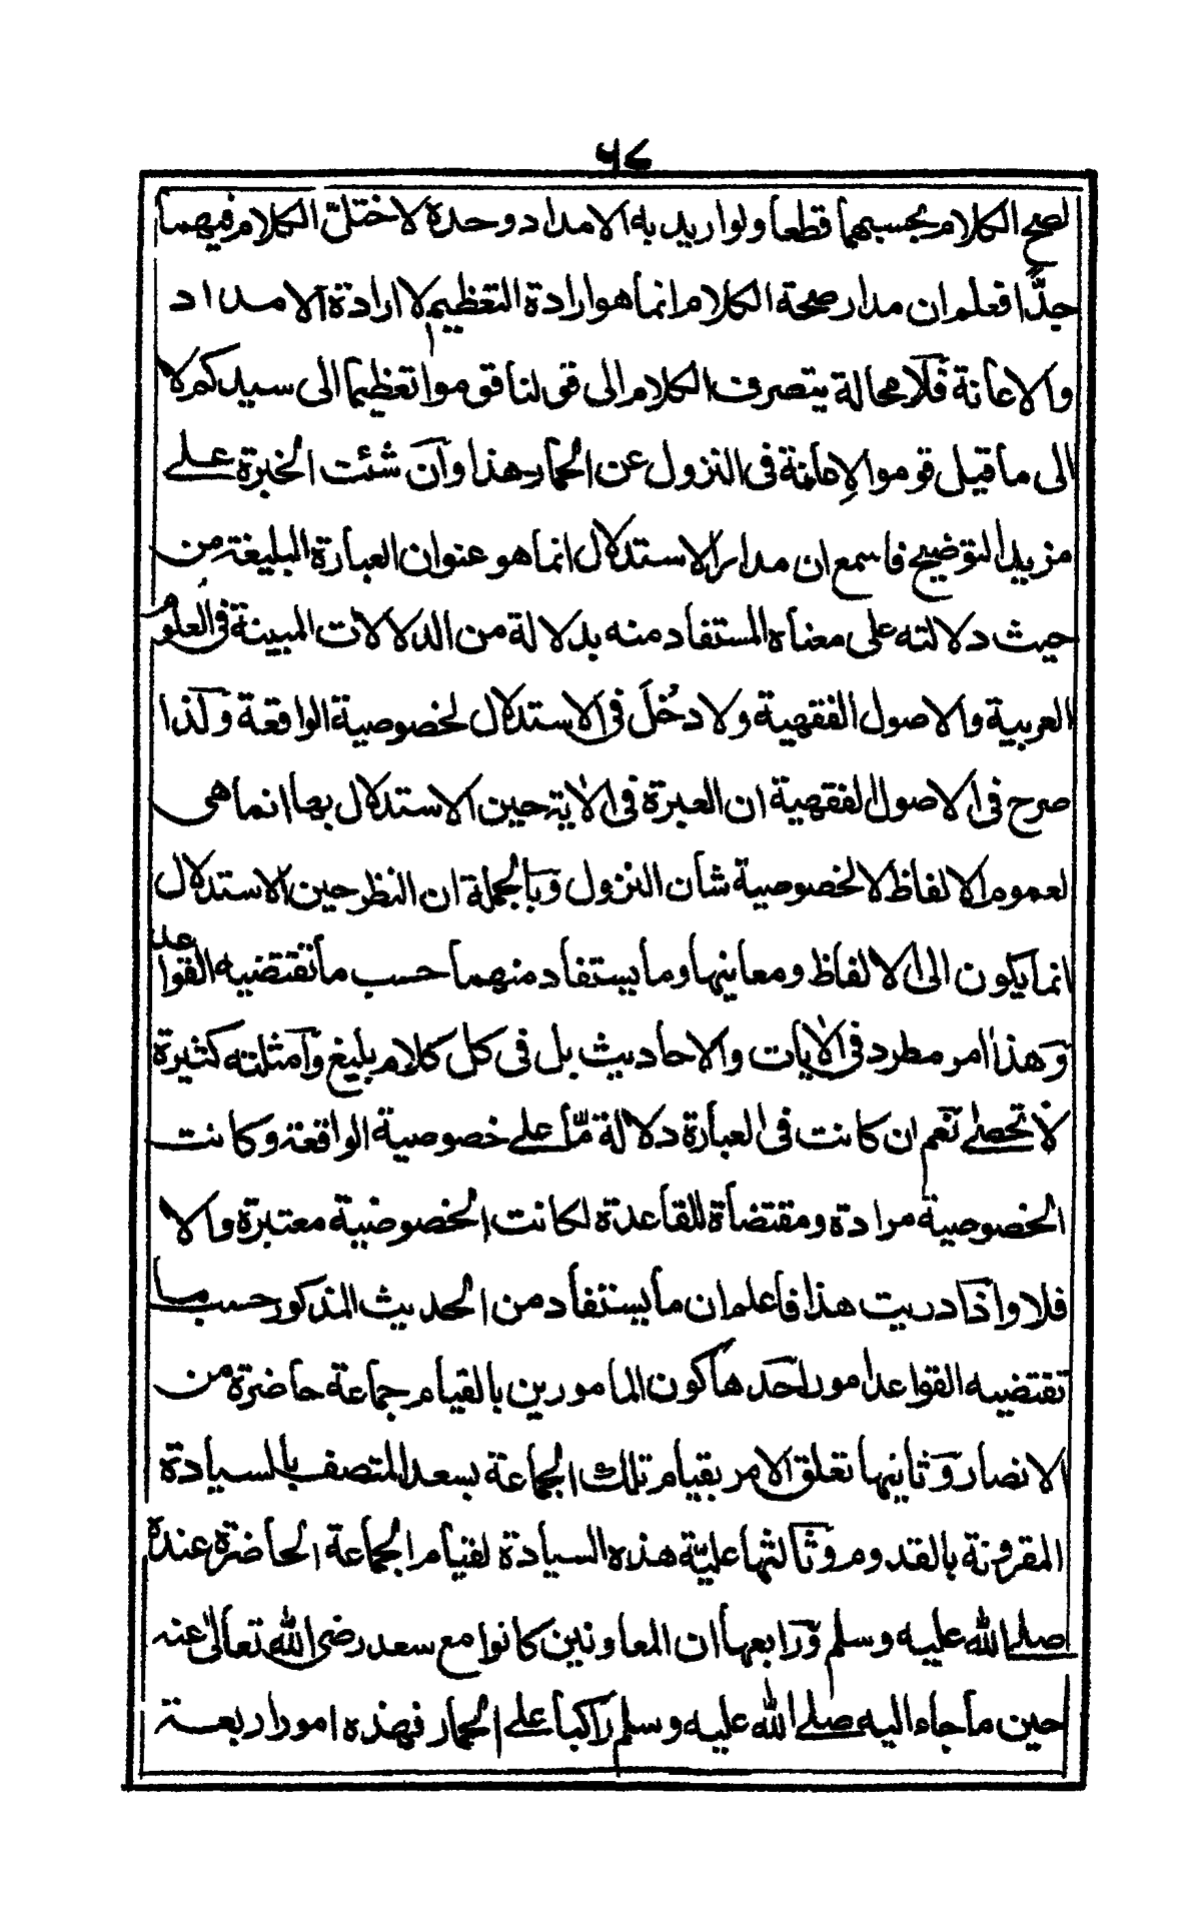 ٦٧
لصح الكلام بحسبهما قطعا ولو اريد به الامداد وحده لاختلّ الكلام فيهما
جدّا فعلم ان مدار صحة الكلام انما هو ارادة التعظيم لا ارادة الامداد
والاعانة فلا محالة يتصرف الكلام الى قولنا قوموا تعظيما الى سيدكم لا
الى ما قيل قوموا لاعانة فى النزول عن الحمار هذا وان شئت الخبرة على
مزيد التوضيح فاسمع ان مدار الاستدلال انما هو عنوان العبارة البليغة من
حيث دلالته على معناه المستفاد منه بدلالة من الدلالات المبينة فى العلوم
العربية والاصول الفقهية ولا دخل فى الاستدلال لخصوصية الواقعة وكذا
صرح فى الاصول الفقهية ان العبرة فى الاية حين الاستدلال بها انما هى
لعموم الالفاظ لا لخصوصية شأن النزول وبالجملة ان النظر حين الاستدلال
انما يكون الى الالفاظ ومعانيها وما يستفاد منهما حسب ما تقتضيه القواعد
وهذا امر مطرد فى الايات والاحاديث بل فى كل كلام بليغ وامثلته كثيرة
لا تحصى نعم ان كانت فى العبارة دلالة مّا على خصوصية الواقعة وكانت
الخصوصية مرادة ومقتضاة للقاعدة لكانت الخصوصية معتبرة والا
فلا واذا دريت هذا فاعلم ان ما يستفاد من الحديث المذكور حسب ما
تقتضيه القواعد امور احدها كون المامورين بالقيام جماعة حاضرة من
الانصار وثانيها تعلق الامر بقيام تلك الجماعة بسعد المتصف بالسيادة
المقرونة بالقدوم وثالثها عليّة هذه السيادة لقيام الجماعة الحاضرة عنده
صلى الله عليه وسلم ورابعها ان المعاونين كانوا مع سعد رضى الله تعالى عنه
حين ما جاء اليه صلى الله عليه وسلم راكبا على الحمار فهذه امور اربعة